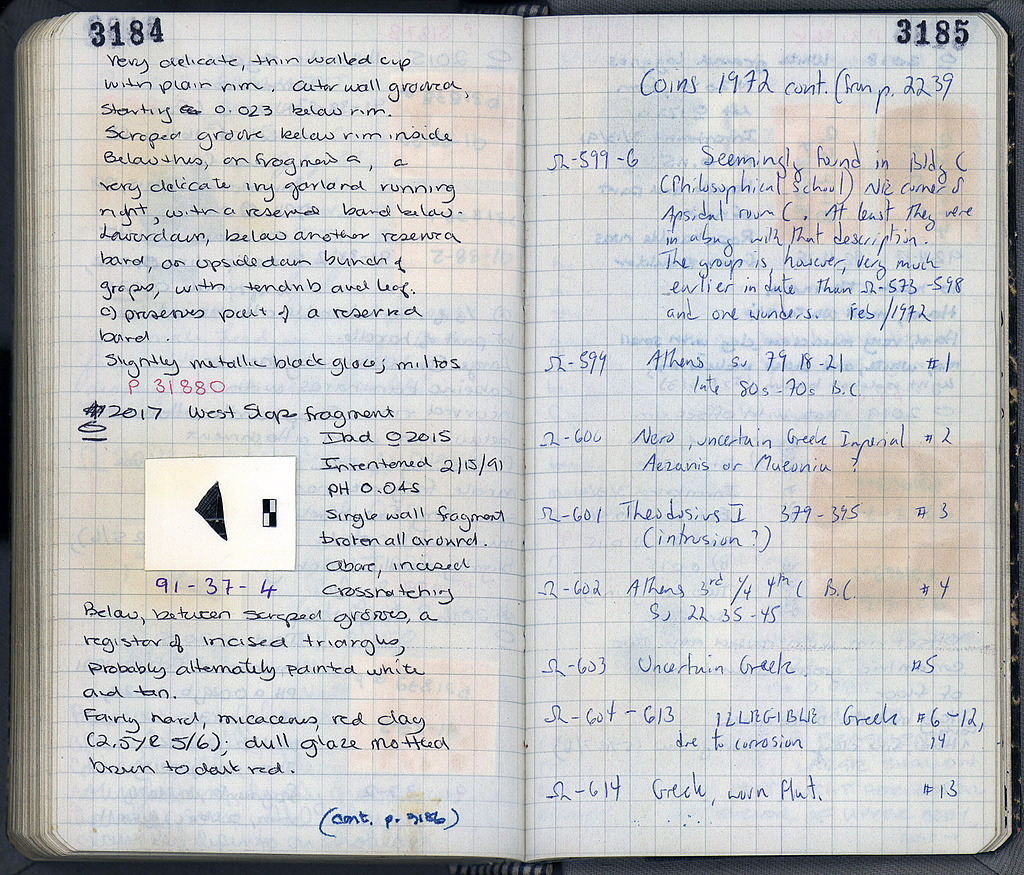 3184
Very delicate, thin walled cup
with plain rim. Outer wall grooved,
starting 0.023 below rim.
Scraped groove below rim inside
Below this, on fragment a, a
very delicate ivy garland running
right, with a reserved band below.
Lower down, below another reserved
band, an upside down bunch of
grapes, with tendrils and leaf.
c) preserves part of a reserved
band.
Slightly metallic black glaze; miltos
P 31880
#2017 West Slope fragment
O
Ibid O 2015
Inventoried 2/15/91
pH 0.045
Single wall fragment
broken all around.
Above, incised
crosshatching
91-37-4
Below, between scraped grooves, a
register of incised triangles,
probably alternately painted white
and tan.
Fairly hard, micaceous, red clay
(2.5YR 5/6); dull glaze mottled
brown to dark red.
(cont. p. 3186)
3185
Coins 1972 cont. (from p. 2239
Ω-599-6 Seemingly found in Bldg C
(Philosophical School) NE corner of
Apsidal room C. At least they were
in a bag with that description.
The group is, however, very much
earlier in date than Ω-573-598
and one wonders. Feb/1972
Ω-599 Athens Sv 79 18-21 #1
late 80s-70s B.C.
Ω-600 Nero, uncertain Greek Imperial #2
Aezanis or Maeonia ?
Ω-601 Theodosius I 379-395 #3
(intrusion?)
Ω-602 Athens 3rd 1/4 4th C B.C. #4
Sv 22 35-45
Ω-603 Uncertain Greek #5
Ω-604-613 ILLEGIBLE Greek #6-12,
due to corrosion 14
Ω-614 Greek, worn flat. #13